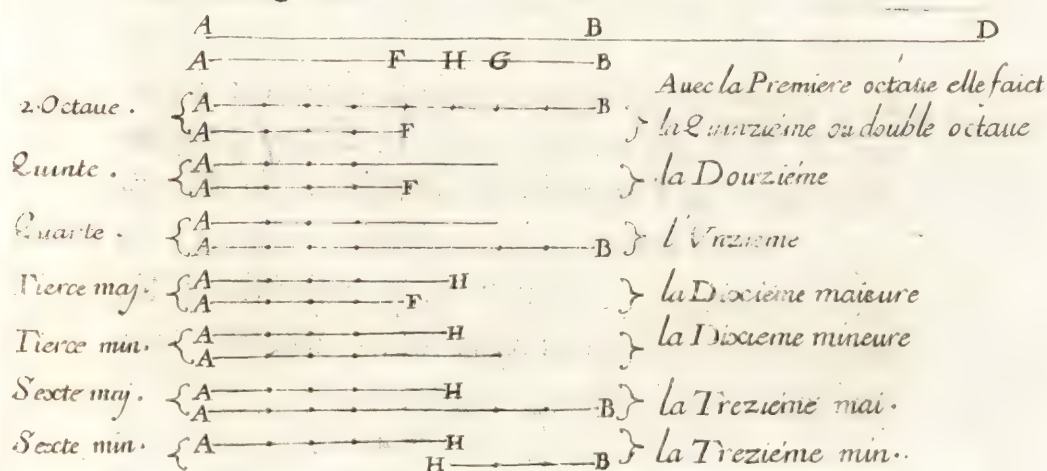 A B D
A F H G B
2. Octaue. A B Auec la Premiere octaue elle faict
A F la Quinziéme ou double octaue
Quinte. A
A F la Douziéme
Quarte. A
A B l'Vnzieme
Tierce maj. A H
A F la Dixciéme maieure
Tierce min. A H la Dixcieme mineure
A
Sexte maj. A H
A B la Treziéme mai.
Sexte min. A H la Treziéme min..
H B